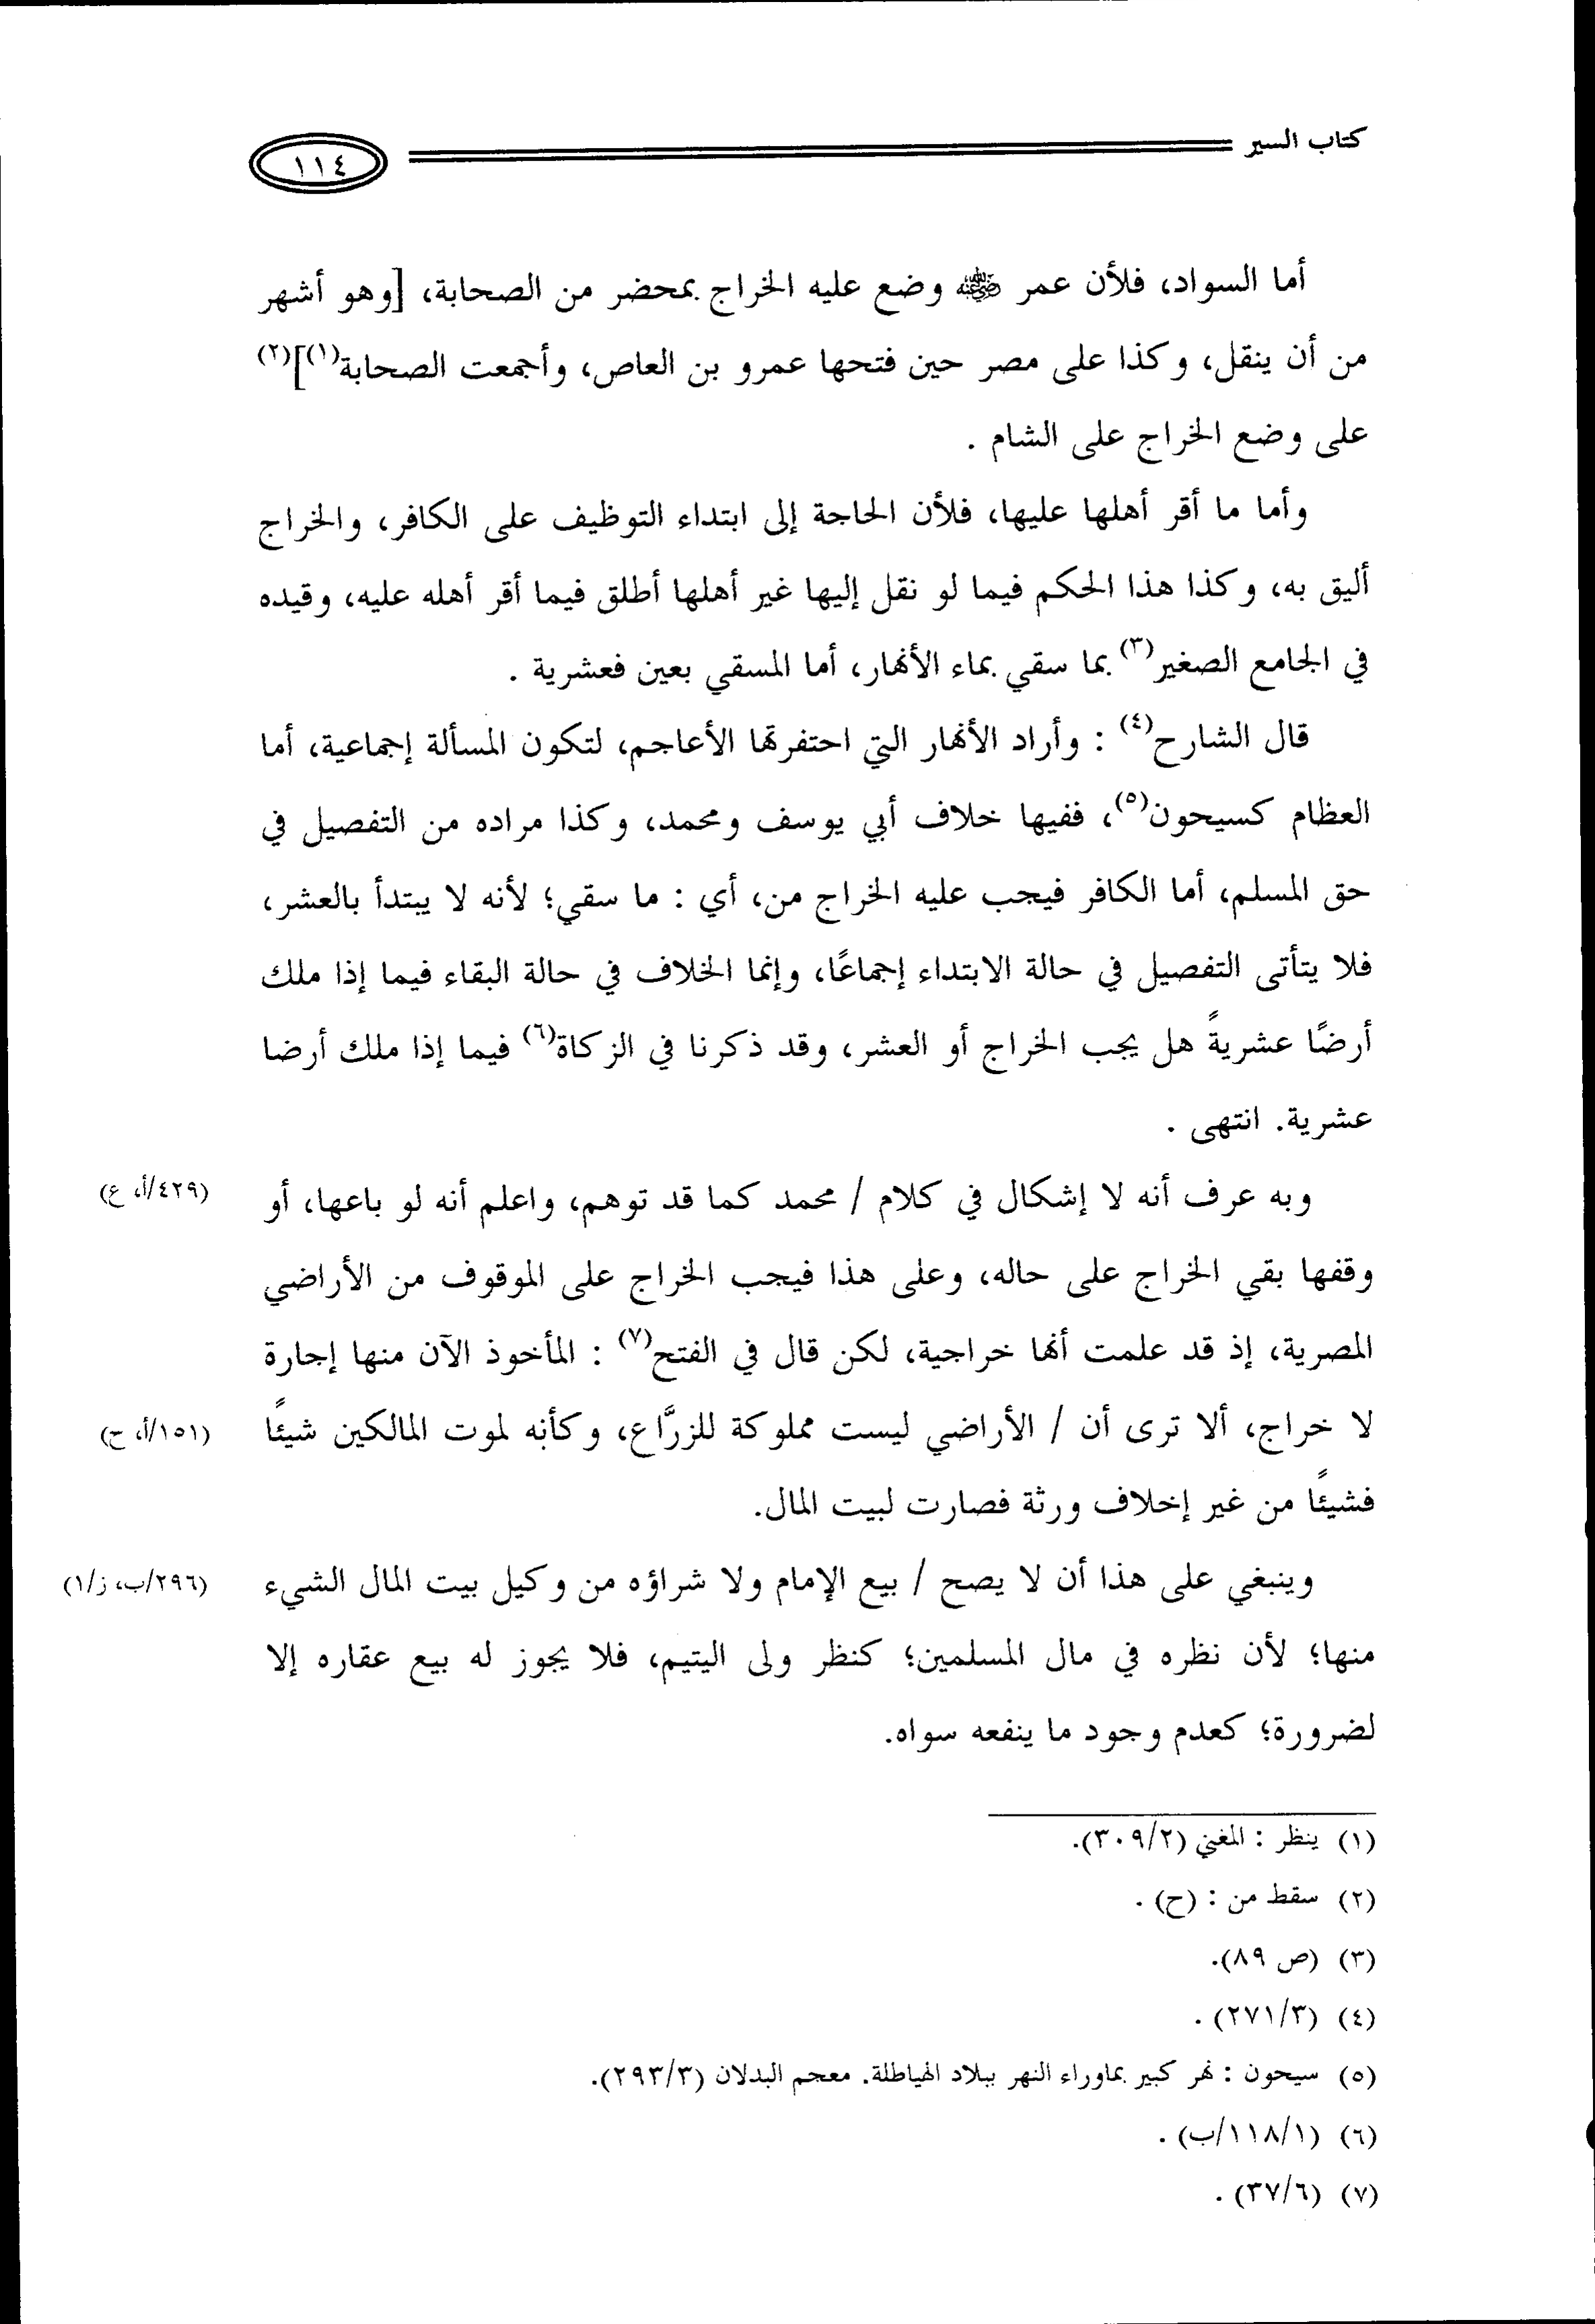 كتاب السير
١١٤
أما السواد، فلأن عمر ﷺ وضع عليه الخراج بمحضر من الصحابة، [وهو أشهر
من أن ينقل، وكذا على مصر حين فتحها عمرو بن العاص، وأجمعت الصحابة(١)](٢)
على وضع الخراج على الشام .
وأما ما أقر أهلها عليها، فلأن الحاجة إلى ابتداء التوظيف على الكافر، والخراج
أليق به، وكذا هذا الحكم فيما لو نقل إليها غير أهلها أطلق فيما أقر أهله عليه، وقيده
في الجامع الصغير(٣) بما سقي بماء الأنهار، أما المسقي بعين فعشرية .
قال الشارح(٤) : وأراد الأنهار التي احتفرتها الأعاجم، لتكون المسألة إجماعية، أما
العظام كسيحون(٥)، ففيها خلاف أبي يوسف ومحمد، وكذا مراده من التفصيل في
حق المسلم، أما الكافر فيجب عليه الخراج من، أي : ما سقي؛ لأنه لا يبتدأ بالعشر،
فلا يتأتى التفصيل في حالة الابتداء إجماعًا، وإنما الخلاف في حالة البقاء فيما إذا ملك
أرضًا عشريةً هل يجب الخراج أو العشر، وقد ذكرنا في الزكاة(٦) فيما إذا ملك أرضا
عشرية. انتهى .
وبه عرف أنه لا إشكال في كلام / محمد كما قد توهم، واعلم أنه لو باعها، أو (٤٢٩/أ، ع)
وقفها بقي الخراج على حاله، وعلى هذا فيجب الخراج على الموقوف من الأراضي
المصرية، إذ قد علمت أنها خراجية، لكن قال في الفتح(٧) : المأخوذ الآن منها إجارة
لا خراج، ألا ترى أن / الأراضي ليست مملوكة للزرَّاع، وكأنه لموت المالكين شيئًا (١٥١/أ، ح)
فشيئًا من غير إخلاف ورثة فصارت لبيت المال.
وينبغي على هذا أن لا يصح / بيع الإمام ولا شراؤه من وكيل بيت المال الشيء (٢٩٦/ب، ز/١)
منها؛ لأن نظره في مال المسلمين؛ كنظر ولى اليتيم، فلا يجوز له بيع عقاره إلا
لضرورة؛ كعدم وجود ما ينفعه سواه.
(١) ينظر : المغني (٣٠٩/٢).
(٢) سقط من : (ح) .
(٣) (ص ٨٩).
(٤) (٢٧١/٣) .
(٥) سيحون : نهر كبير بماوراء النهر ببلاد الهياطلة. معجم البدلان (٢٩٣/٣).
(٦) (١١٨/١/ب) .
(٧) (٣٧/٦) .